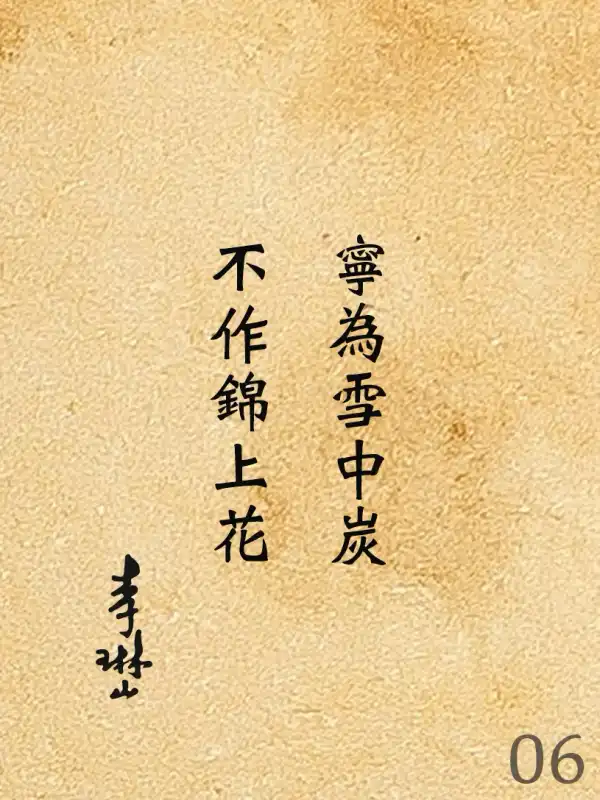 寧為雪中炭
不作錦上花
李琳山
06